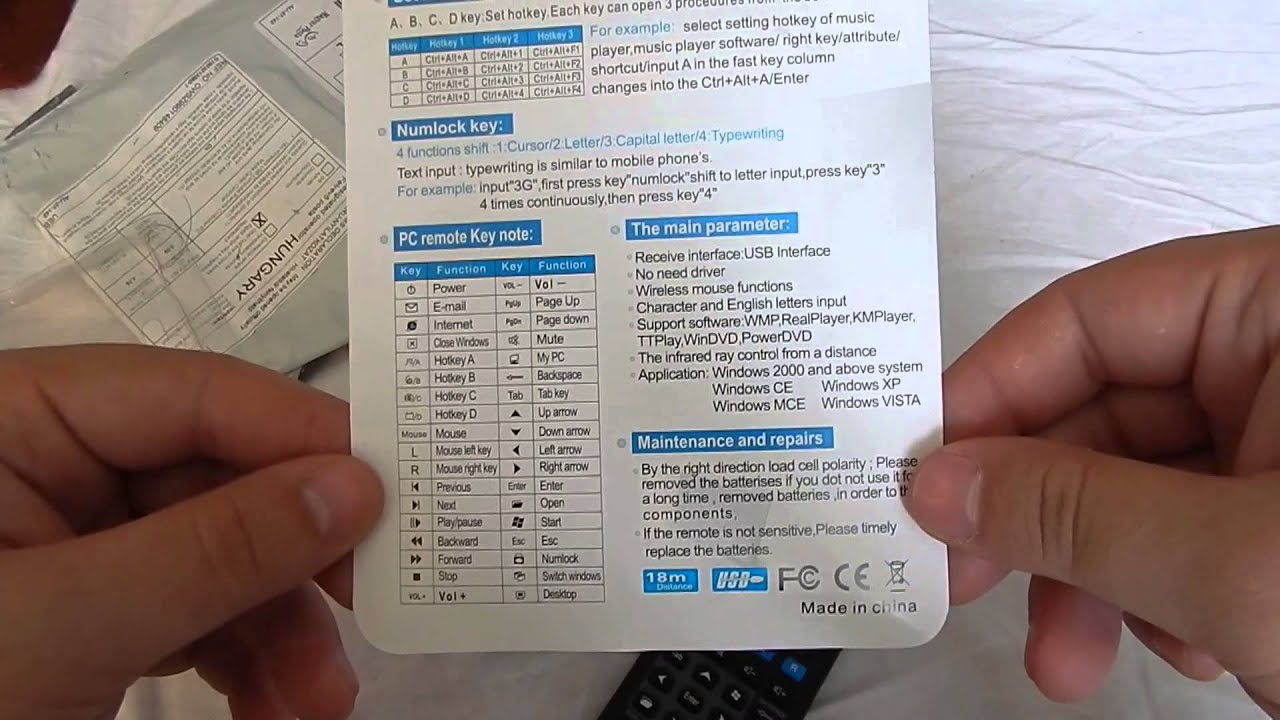 A、B、C、D key:Set hotkey.Each key can open 3 procedures from
Hotkey Hotkey 1 Hotkey 2 Hotkey 3
A Ctrl+Alt+A Ctrl+Alt+1 Ctrl+Alt+F1
B Ctrl+Alt+B Ctrl+Alt+2 Ctrl+Alt+F2
C Ctrl+Alt+C Ctrl+Alt+3 Ctrl+Alt+F3
D Ctrl+Alt+D Ctrl+Alt+4 Ctrl+Alt+F4
For example: select setting hotkey of music
player,music player software/ right key/attribute/
shortcut/input A in the fast key column
changes into the Ctrl+Alt+A/Enter
Numlock key:
4 functions shift :1:Cursor/2:Letter/3:Capital letter/4:Typewriting
Text input : typewriting is similar to mobile phone's.
For example: input"3G",first press key"numlock"shift to letter input,press key"3"
4 times continuously,then press key"4"
PC remote Key note:
Key Function Key Function
Power VOL- Vol -
E-mail PgUp Page Up
Internet PgDn Page down
Close Windows Mute
/A Hotkey A My PC
/B Hotkey B Backspace
/C Hotkey C Tab Tab key
/D Hotkey D Up arrow
Mouse Mouse Down arrow
L Mouse left key Left arrow
R Mouse right key Right arrow
Previous Enter Enter
Next Open
Play/pause Start
Backward Esc Esc
Forward Numlock
Stop Switch windows
VOL+ Vol + Desktop
The main parameter:
Receive interface:USB Interface
No need driver
Wireless mouse functions
Character and English letters input
Support software:WMP,RealPlayer,KMPlayer,
TTPlay,WinDVD,PowerDVD
The infrared ray control from a distance
Application: Windows 2000 and above system
Windows CE Windows XP
Windows MCE Windows VISTA
Maintenance and repairs
By the right direction load cell polarity ; Please
removed the batterises if you dot not use it
a long time , removed batteries ,in order to
components,
If the remote is not sensitive,Please timely
replace the batteries.
18m
Distance
USB
FC CE
Made in china
HUNGARY
Tab
Enter
R